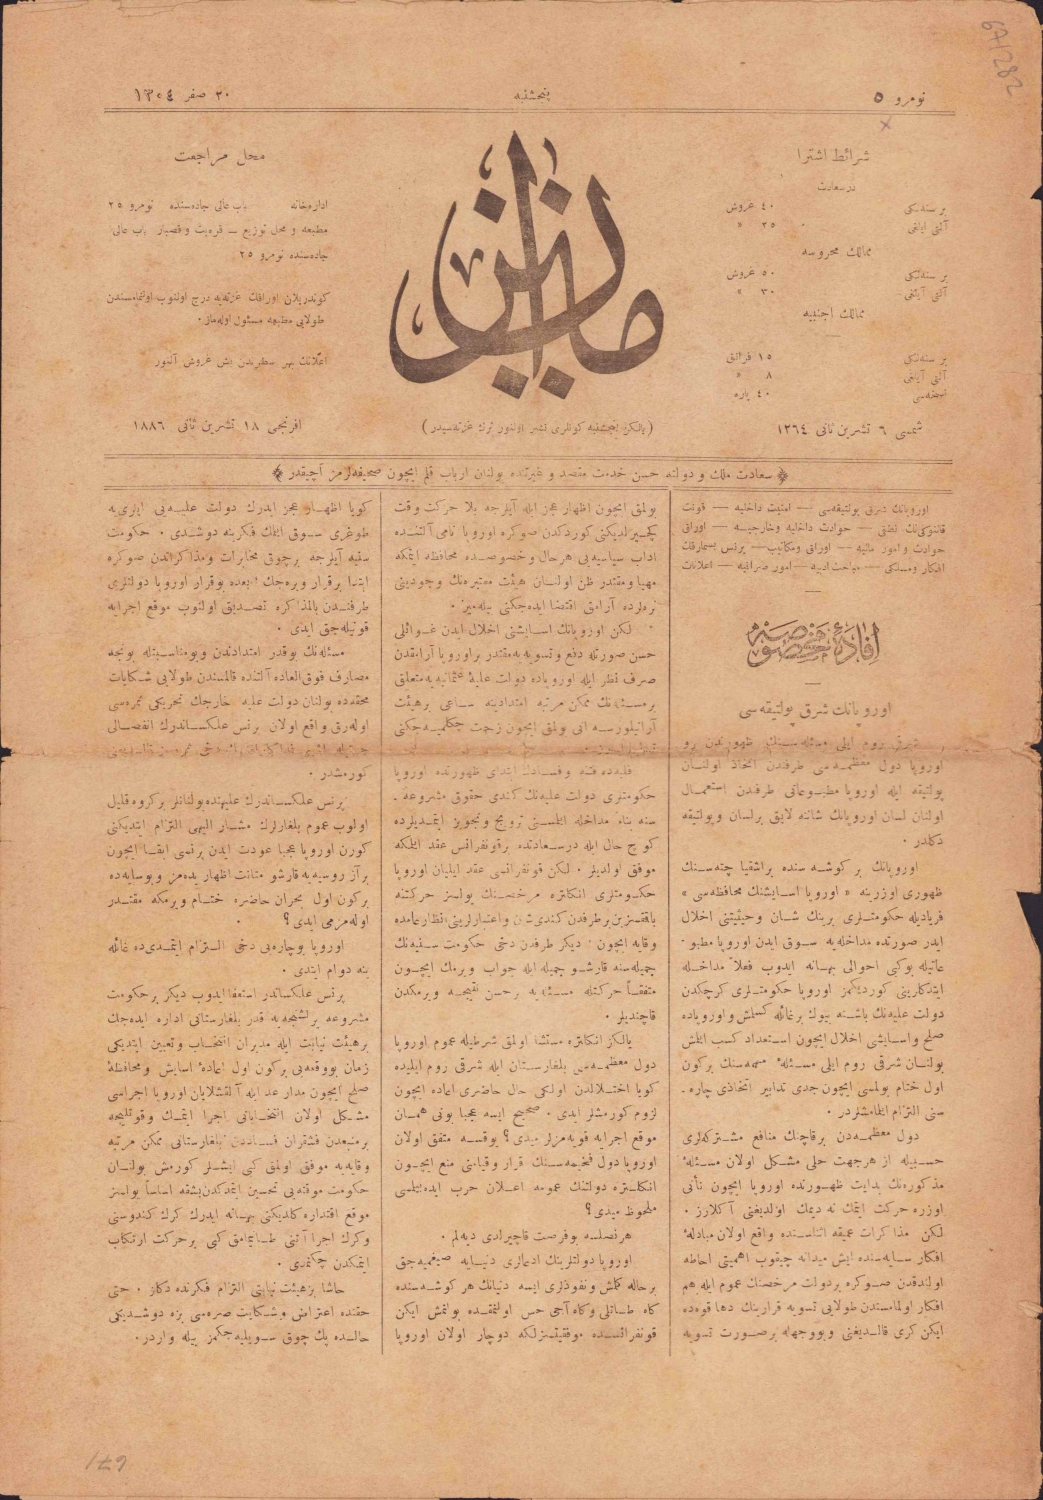 نومرو ٥
پنجشنبه
٢٠ صفر ١٣٠٤
شرائط اشترا
درسعادت
بر سنه‌لكی ٤٠ غروش
آلتی آیلغی ٢٥ »
ممالك محروسه
بر سنه‌لكی ٥٠ غروش
آلتی آیلغی ٣٠ »
ممالك اجنبیه
بر سنه‌لكی ١٥ فرانق
آلتی آیلغی ٨ »
نسخه‌سی ٤٠ پاره
شمسی ٦ تشرین ثانی ١٢٦٤
میزان
(یالكز پنجشنبه كونلری نشر اولنور ترك غزته‌سیدر)
محل مراجعت
اداره‌خانه باب عالی جاده‌سنده نومرو ٢٥
مطبعه و محل توزیع — قره‌بت و قصبار باب عالی
جاده‌سنده نومرو ٢٥
كوندریلان اوراقك غزته‌یه درج اولنوب اولنمامسندن
طولایی مطبعه مسئول اوله‌ماز.
اعلاناتك بهر سطرندن بش غروش آلنور
افرنجی ١٨ تشرین ثانی ١٨٨٦
سعادت ملك و دولته حسن خدمت مقصد و غیرتنده بولنان ارباب قلم ایچون صحیفه‌لرمز آچیقدر
اوروپانك شرق پولتیقه‌سی — امنیت داخلیه — قونت
قالنوكی‌نك نطقی — حوادث داخلیه وخارجیه — اوراق
حوادث و امور مالیه — اوراق ومكاتیب — پرنس بسمارقك
افكار ومسلكی — مباحث ادبیه — امور صرافیه — اعلانات
افاده مخصوصه
اوروپانك شرق پولتیقه‌سی
شرقی روم ایلی مسئله‌سنك ظهورندن برو
اوروپا دول معظمه‌سی طرفندن اتخاذ اولنان
پولتیقه ایله اوروپا مطبوعاتی طرفندن استعمال
اولنان لسان اوروپانك شاننه لایق برلسان وپولتیقه
دكلدر.
اوروپانك بر كوشه‌سنده براشقیا چته‌سنك
ظهوری اوزرینه « اوروپا اسایشنك محافظه‌سی »
فریادیله حكومتلری برینك شان وحیثیتنی اخلال
ایدر صورتده مداخله‌یه سوق ایدن اوروپا مطبو-
عاتیله بوكبی احوالی بهانه ایدوب فعلاً مداخله
ایتدكلرینی كوردیكمز اوروپا حكومتلری كرچكدن
دولت علیه‌نك باشنه بیوك برغائله كسلمش واوروپاده
صلح واسایشی اخلال ایچون استعداد كسب ایتمش
بولنان شرقی روم ایلی مسئلهٔ مهمه‌سنك بركون
اول ختام بولمسی ایچون جدی تدابیر اتخاذی چاره-
سنی التزام ایلمامشلردر.
دول معظمه‌دن برقاچنك منافع مشتركه‌لری
حسبیله از هرجهت حلی مشكل اولان مسئلهٔ
مذكوره‌نك بدایت ظهورنده اوروپا ایچون تأنی
اوزره حركت ایتمك نه دیمك اولدیغنی آكلارز.
لكن مذاكرات عمیقه اثناسنده واقع اولان مبادلهٔ
افكار سایه‌سنده ایش میدانه چیقوب اهمیتی احاطه
اولندقدن صوكره بردولت مرخصنك عموم ایله هم
افكار اولمامسندن طولایی تسویه قرارینك دها قوه‌ده
ایكن كری قالدیغنی وبووجهله برصورت تسویه
بولمق ایچون اظهار عجز ایله آیلرجه بلا حركت وقت
كچیرلدیكنی كوردكدن صوكره اوروپا نامی آلتنده
اداب سیاسیه‌یی هرحال وخصوصده محافظه ایتمكه
مهیا ومقتدر ظن اولنان هیئت معتبره‌نك وجودینی
نره‌لرده آرامق اقتضا ایده‌جكنی بیله‌میز.
لكن اوروپانك اسایشنی اخلال ایدن غوائلی
حسن صورتله دفع وتسویه‌یه مقتدر براوروپا آرامقدن
صرف نظر ایله اوروپاده دولت علیهٔ عثمانیه‌یه متعلق
برمسئله‌نك ممكن مرتبه امتدادینه ساعی برهیئت
آرانیلورسه انی بولمق ایچون زحمت چكلمیه‌جكنی
فلبه‌ده فتنه وفسادك ابتدای ظهورنده اوروپا
حكومتلری دولت علیه‌نك كندی حقوق مشروعه-
سنه بناء مداخله ایتمسنی ترویج وتجویز ایتمدیلرده
كوچ حال ایله درسعادتده برقونفرانس عقد ایتمكه
موفق اولدیلر. لكن قونفرانسی عقد ایلیان اوروپا
حكومتلری انكلتره مرخصنك یولسز حركتنه
باقمقسزین برطرفدن كندی شان واعتبارلرینی انظار عامه‌ده
وقایه ایچون دیكر طرفدن دخی حكومت سنیه‌نك
جمیله‌سنه قارشو جمیله ایله جواب ویرمك ایچون
متفقاً حركتله مسئله‌یه برحسن نتیجه ویرمكدن
قاچندیلر.
یالكز انكلتره مستثنا اولمق شرطیله عموم اوروپا
دول معظمه‌سی بلغارستان ایله شرقی روم ایلیده
كویا اختلالدن اولكی حال حاضری اعاده ایچون
لزوم كورمشلر ایدی. صحیح ایسه عجبا بونی همان
موقع اجرایه قویه‌مزلر میدی؟ یوقسه متفق اولان
اوروپا دول فخیمه‌سنك قرار وقیامنی منع ایچون
انكلتره دولتنك عمومه اعلان حرب ایده‌بیلمسی
ملحوظ میدی؟
هرنصلسه بوفرصت قاچیرلدی دیه‌لم.
اوروپا دولتلرینك ادملری دنیایه صیغمیه‌جق
برحاله كلمش ونفوذلری ایسه دنیانك هر كوشه‌سنده
كاه طاتلی وكاه آجی حس اولنمقده بولنمش ایكن
قونفرانسده موفقیتسزلكه دوچار اولان اوروپا
كویا اظهار عجز ایدرك دولت علیه‌یی ایلری‌یه
طوغری سوق ایتمك فكرینه دوشدی. حكومت
سنیه آیلرجه برچوق مخابرات ومذاكراتدن صوكره
ابتدا برقرار ویره‌جك بعده بوقرار اوروپا دولتلری
طرفندن بالمذاكره تصدیق اولنوب موقع اجرایه
قونیله‌جق ایدی.
مسئله‌نك بوقدر امتدادندن وبومناسبتله بونجه
مصارف فوق‌العاده آلتنده قالمسندن طولایی شكایات
محقه‌ده بولنان دولت علیه خارجك تحریكی ثمره‌سی
اوله‌رق واقع اولان پرنس علكساندرك انفصالی
كورمشدر.
پرنس علكساندرك علیهنده بولنانلر بركروه قلیل
اولوب عموم بلغارلرك مشار الیهی التزام ایتدیكنی
كورن اوروپا عجبا عودت ایدن پرنسی ابقا ایچون
برآز روسیه‌یه قارشو متانت اظهار ایده‌مز وبوسایه‌ده
بركون اول بحران حاضره ختام ویرمكه مقتدر
اوله‌مزمی ایدی؟
اوروپا بوچاره‌یی دخی التزام ایتمدی‌ده غائله
ینه دوام ایتدی.
پرنس علكساندر استعفا ایدوب دیكر برحكومت
مشروعه برلشنجه‌یه قدر بلغارستانی اداره ایده‌جك
برهیئت نیابت ایله مدیران انتخاب وتعیین ایتدیكی
زمان بووقعه‌یی بركون اول اعادهٔ اسایش ومحافظهٔ
صلح ایچون مدار عد ایله آلقشلایان اوروپا اجراسی
مشكل اولان انتخاباتی اجرا ایتمك وقوتلیجه
برمنبعدن فشقران فساددن بلغارستانی ممكن مرتبه
وقایه‌یه موفق اولمق كبی ایشلر كورمش بولنان
حكومت موقته‌یی تحسین ایتمدكدن بشقه اساساً یولسز
موقع اقتداره كلدیكنی بهانه ایدرك كرك كندوسنی
وكرك اجراآتنی طانیمامق كبی برحركت ارتكاب
ایتمكدن چكنمدی.
حاشا بزهیئت نیابتی التزام فكرنده دكلز. حتی
حقنده اعتراض وشكایت صره‌سی بزه دوشدیكی
حالده پك چوق سویلیه‌جكمز بیله واردر.
671282
671